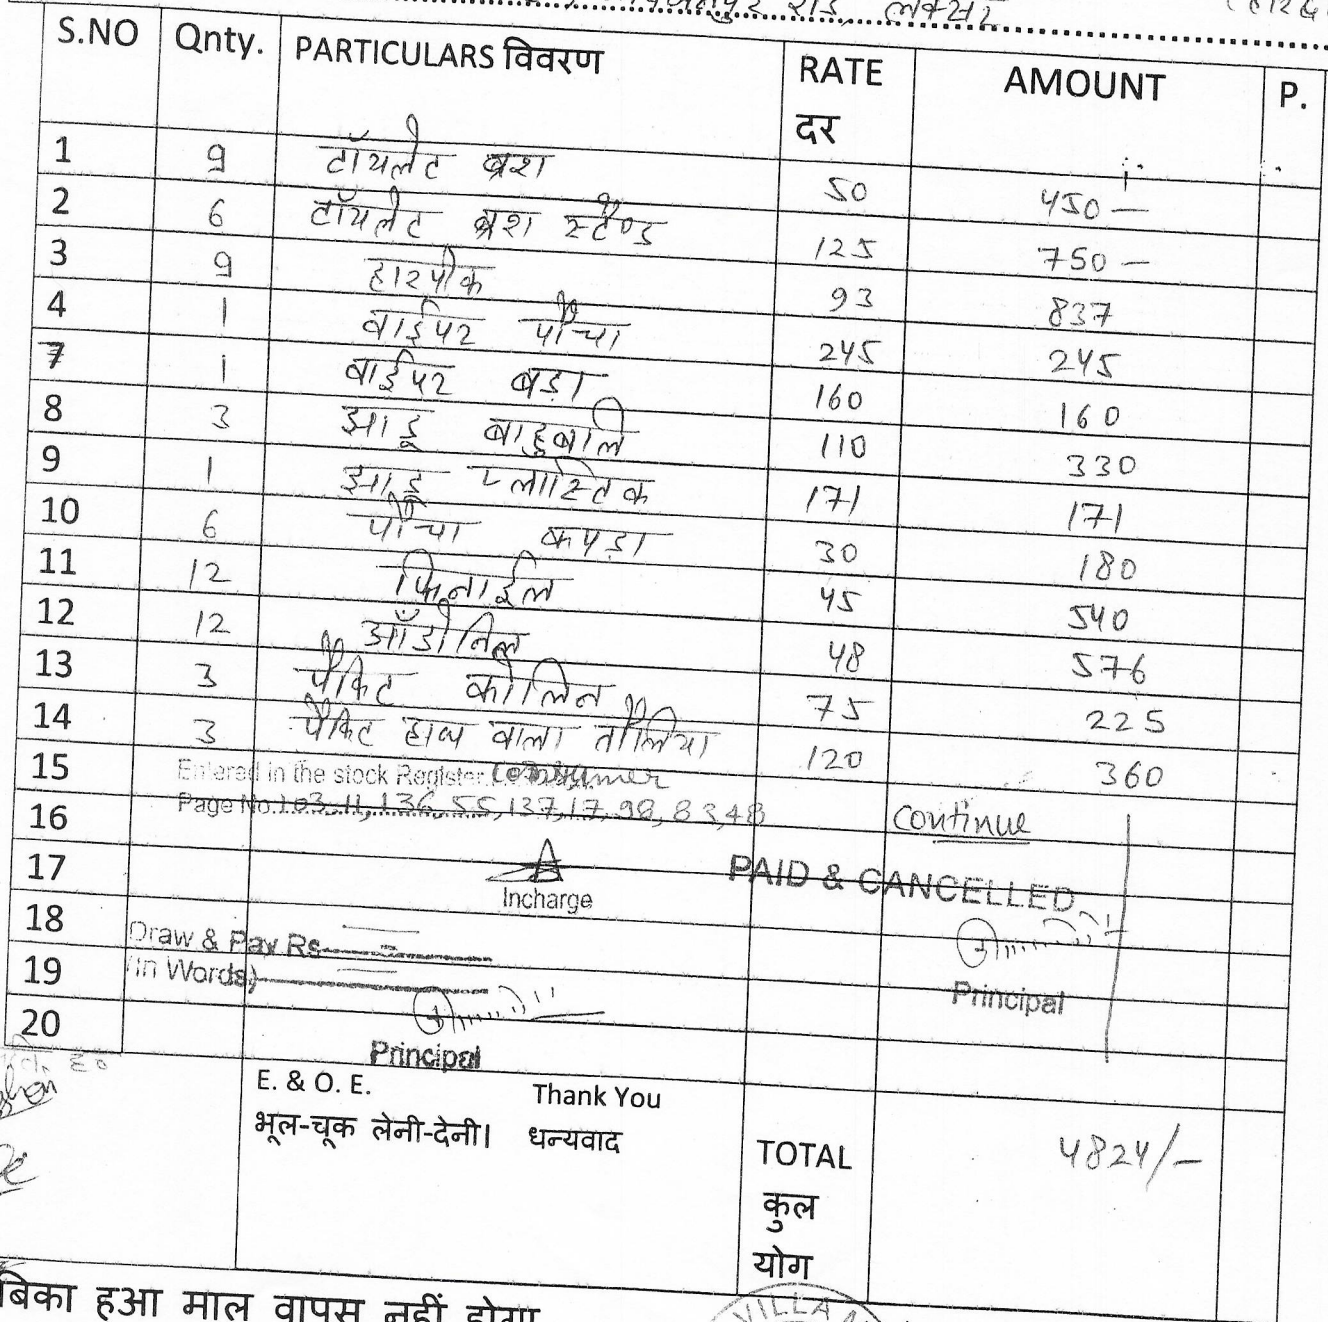 रोड, लक्सर
S.NO Qnty. PARTICULARS विवरण RATE दर AMOUNT P.
1 9 टॉयलेट ब्रश 50 450 —
2 6 टॉयलेट ब्रश स्टैण्ड 125 750 —
3 9 हारपीक 93 837
4 1 वाईपर पौंचा 245 245
7 1 वाईपर बड़ा 160 160
8 3 झाडू बाहुबलि 110 330
9 1 झाडू प्लास्टिक 171 171
10 6 पौंचा कपड़ा 30 180
11 12 फिनाईल 45 540
12 12 ऑडोनिल 48 576
13 3 पैकिट कोलिन 75 225
14 3 पैकिट हाथ वाला तौलिया 120 360
15 Entered in the stock Register
16 Page No. 103, 11, 136, 55, 137, 17, 98, 83, 48 continue
17 Incharge PAID & CANCELLED
18 Draw & Pay Rs
19 (In Words) Principal
20
Principal
E. & O. E. Thank You
भूल-चूक लेनी-देनी। धन्यवाद
TOTAL 4824/-
कुल
योग
बिका हुआ माल वापस नहीं होगा
VILLA